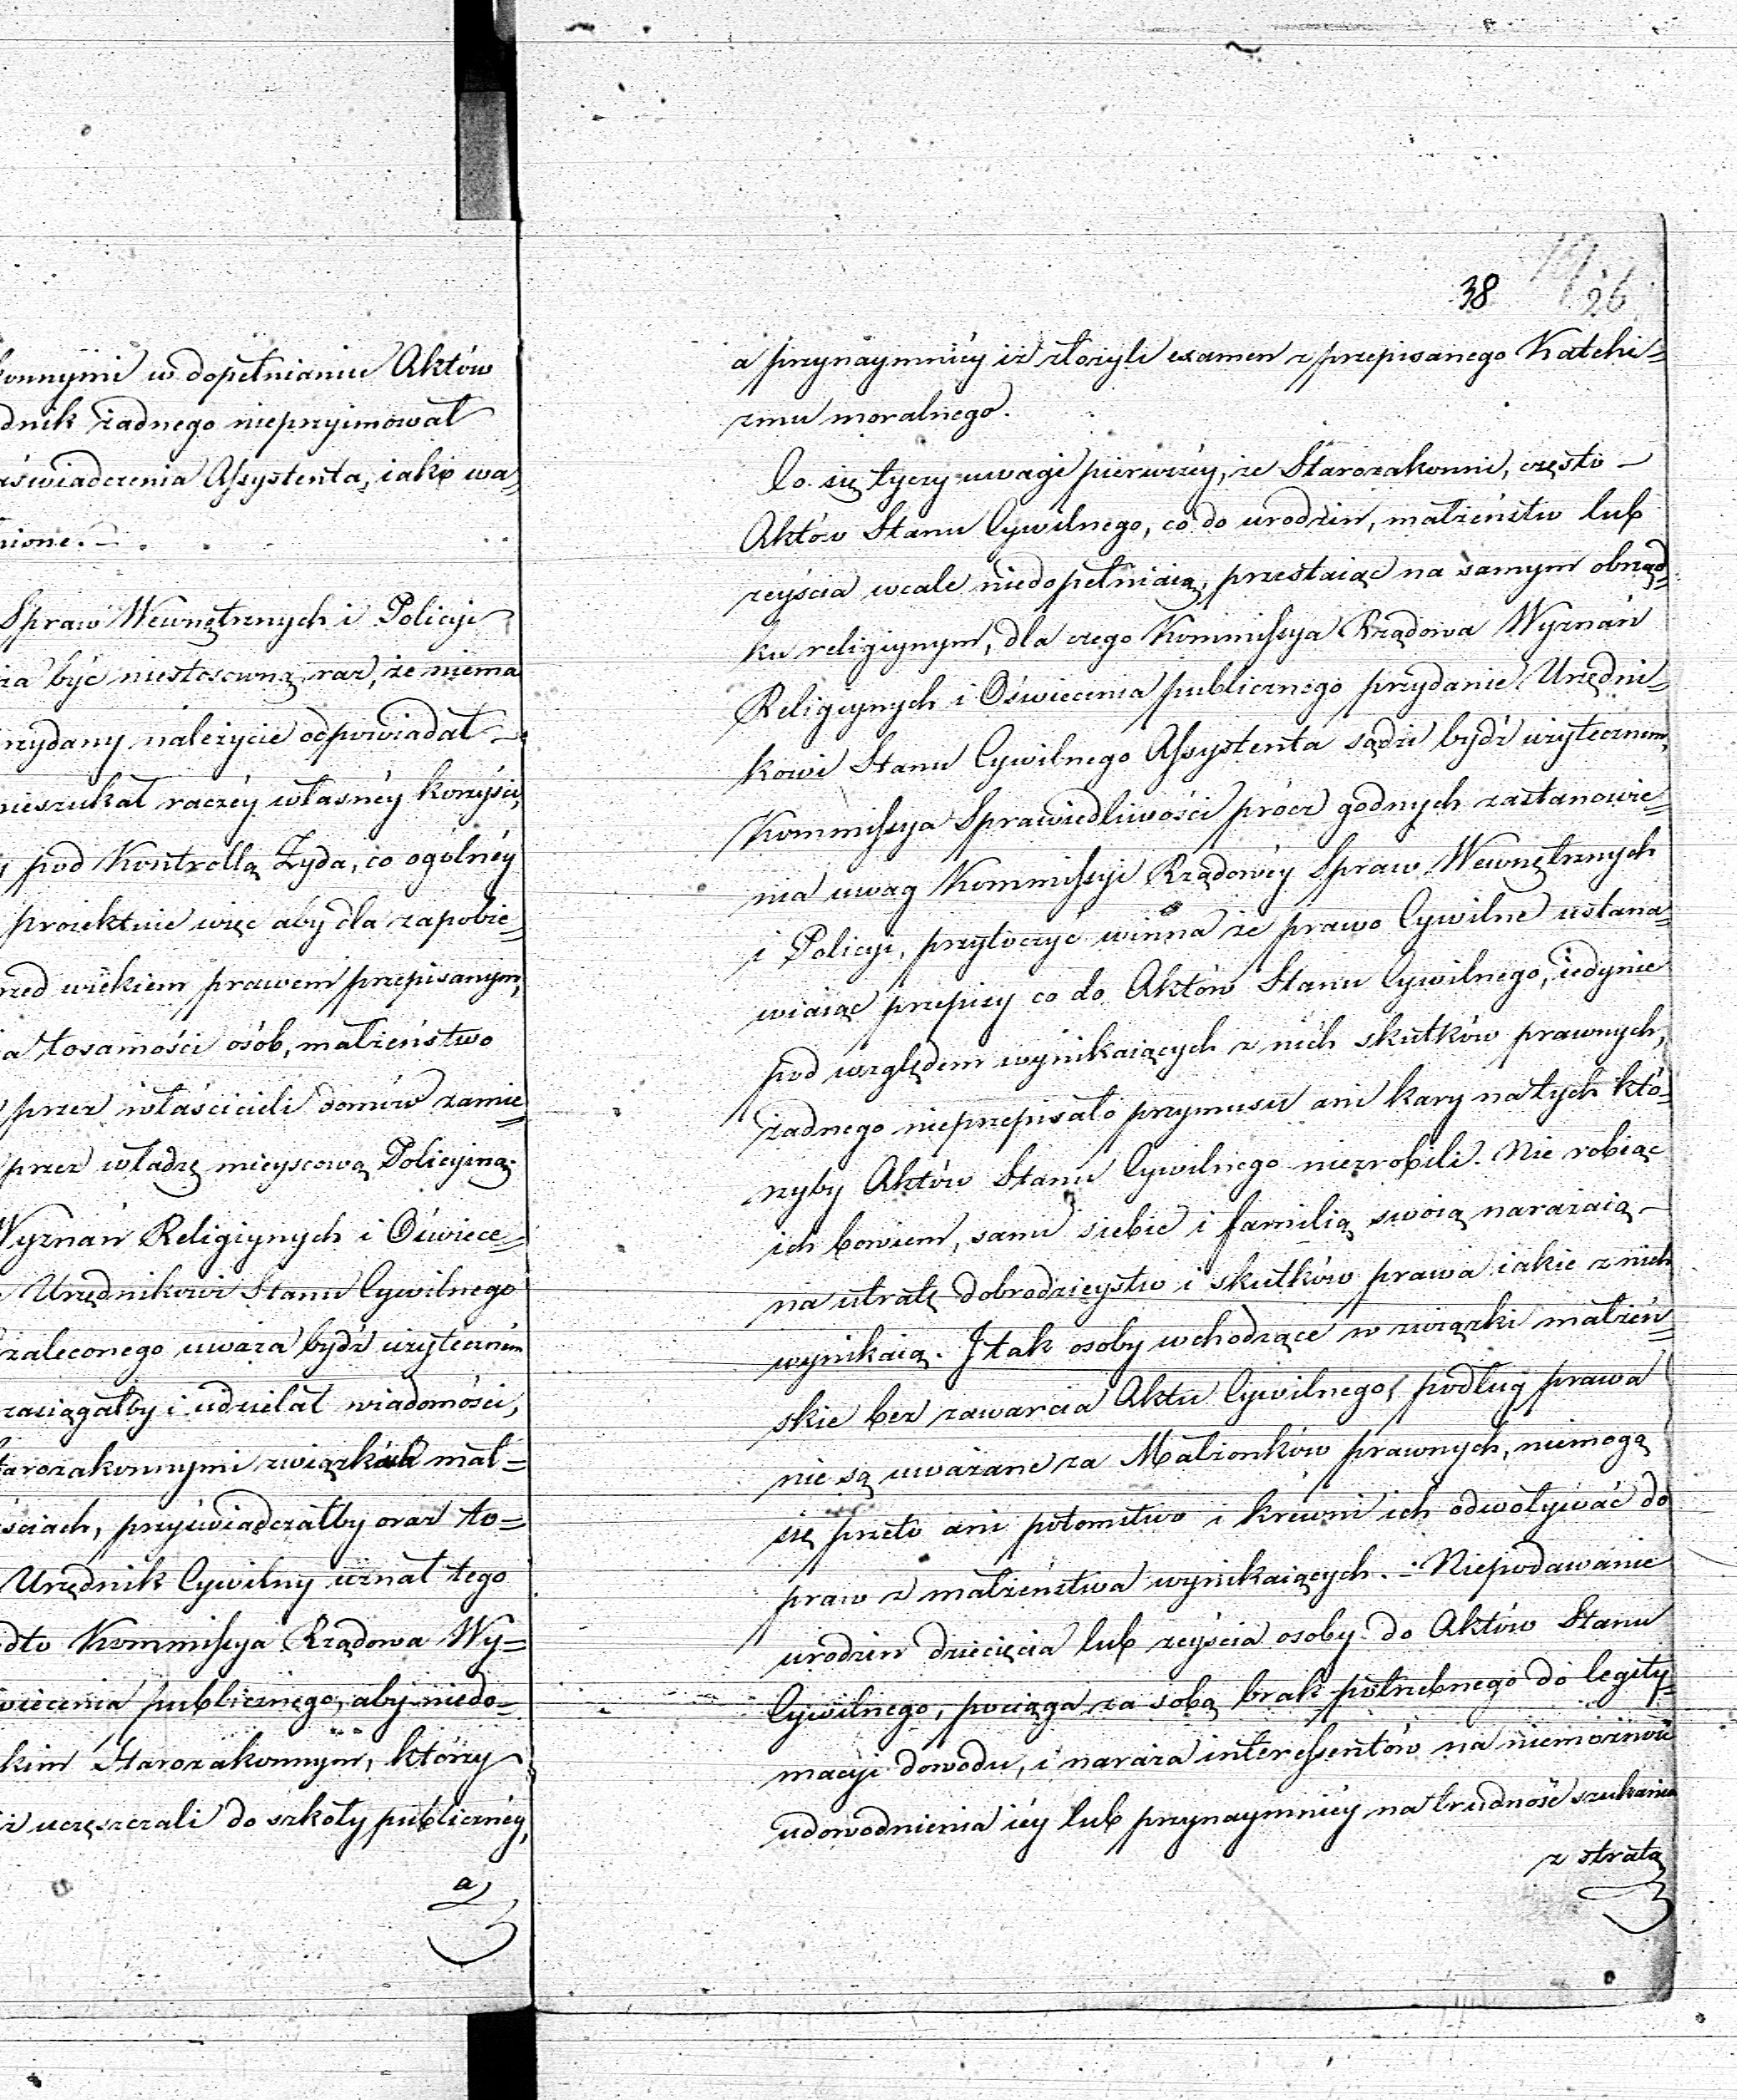 konnymi w dopełnianiu Aktów
dnik żadnego nieprzyimował
aświadczenia Assystenta, iako wa,
nione. —
Spraw Wewnętrznych i Policyi
ża być niestosowną, raz, że niema
rzydany należycie odpowiadał —
nieszukał raczéy własnéy korzyści,
i pod Kontrollą Żyda, co ogólnéy
proiektuie więc aby dla zapobie=
rzed wiekiem prawem przepisanym,
ia tosamości osób, małżeństwo
przez właścicieli domów zamie=
przez władzę mieyscową Policyiną.
Wyznań Religiynych i Oświece=
Urzędnikowi Stanu Cywilnego
zaleconego uważa bydź użytecznem
zaciągałby i udzielał wiadomości,
tarozakonnymi związkach mał=
ściach, przyświadczałby oraz to=
Urzędnik Cywilny uznał tego
dło Kommissya Rządowa Wy=
wiecenia publicznego, aby niedo=
kim Starozakonnym, którzy
iż uczęszczali do szkoły publicznéy,
a
38
26
a przynaymniéy iż złożyli examen z przepisanego Katehi=
zmu moralnego.
Co się tyczy uwagi pierwszéy, że Starozakonni, często —
Aktów Stanu Cywilnego, co do urodzin, małżeństw lub
zeyścia wcale niedopełniaią, przestaiąc na samym obrząd=
ku religiynym, dla czego Kommissya Rządowa Wyznań
Religiynych i Oświecenia publicznego przydanie Urzędni=
kowi Stanu Cywilnego Assystenta sądzi bydź użytecznem,
Kommissya Sprawiedliwości prócz godnych zastanowie=
nia uwag Kommissyi Rządowéy Spraw Wewnętrznych
i Policyi, przytoczyć winna że prawo Cywilne ustana=
wiaiąc przepisy co do Aktów Stanu Cywilnego, iedynie
pod względem wynikaiących z nich skutków prawnych,
żadnego nieprzepisało przymusu ani kary na tych któ=
rzyby Aktów Stanu Cywilnego niezrobili. Nie robiąc
ich bowiem, sami siebie i familią swoią narażaią —
na utratę dobrodzieystw i skutków prawa iakie z nich
wynikaią. I tak osoby wchodzące w związki małżeń=
skie bez zawarcia Aktu Cywilnego, podług prawa
nie są uważane za Małżonków prawnych, niemogą
się przeto ani potomstwo i krewni ich odwoływać do
praw z małżeństwa wynikaiących. — Niepodawanie
urodzin dziecięcia lub zeyścia osoby do Aktów Stanu
Cywilnego, pociąga za sobą brak potrzebnego do legity=
macyi dowodu, i naraża interessentów na niemożność
udowodnienia iéy lub przynaymniéy na trudność szukania
z stratą